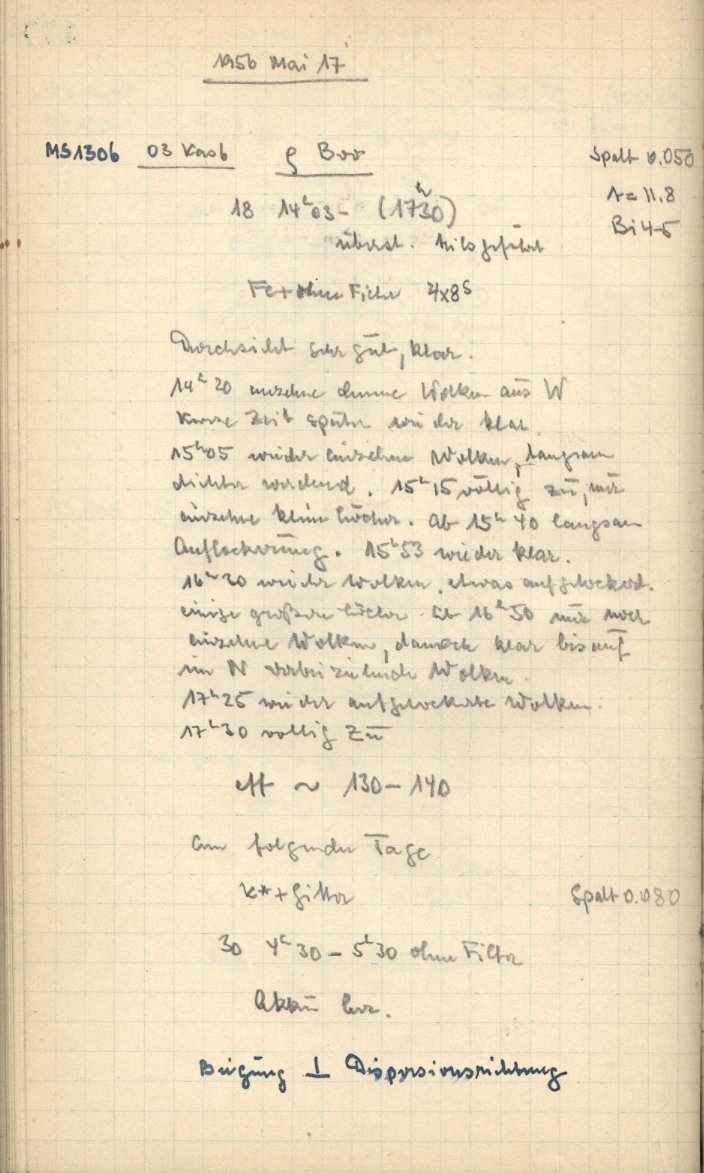 1956 Mai 17
MS1306 03 Kas6 ρ Boo Spalt 0.050
18 14ʰ03 – (17ʰ30) t = 11.8
Bi 4-5
Fe + ohne Filter 4x8ˢ
Durchsicht sehr gut, klar.
14ʰ20 einzelne dünne Wolken aus W
Kurze Zeit später wieder klar.
15ʰ05 wieder einzelne Wolken, langsam
dichter werdend. 15ʰ15 völlig zu, nur
einzelne kleine Löcher. Ab 15ʰ40 langsam
Auflockerung. 15ʰ53 wieder klar.
16ʰ30 wieder Wolken, etwas aufgelockert.
einige größere Löcher. Ab 16ʰ50 nur noch
einzelne Wolken, danach klar bis auf
im N vorbeiziehende Wolken.
17ʰ25 wieder aufgelockerte Wolken.
17ʰ30 völlig zu
eff ~ 130 – 140
Am folgenden Tage
K* + Gitter Spalt 0.080
30 4ʰ30 – 5ʰ30 ohne Filter
Akku leer.
Beugung ⊥ Dispersionsrichtung